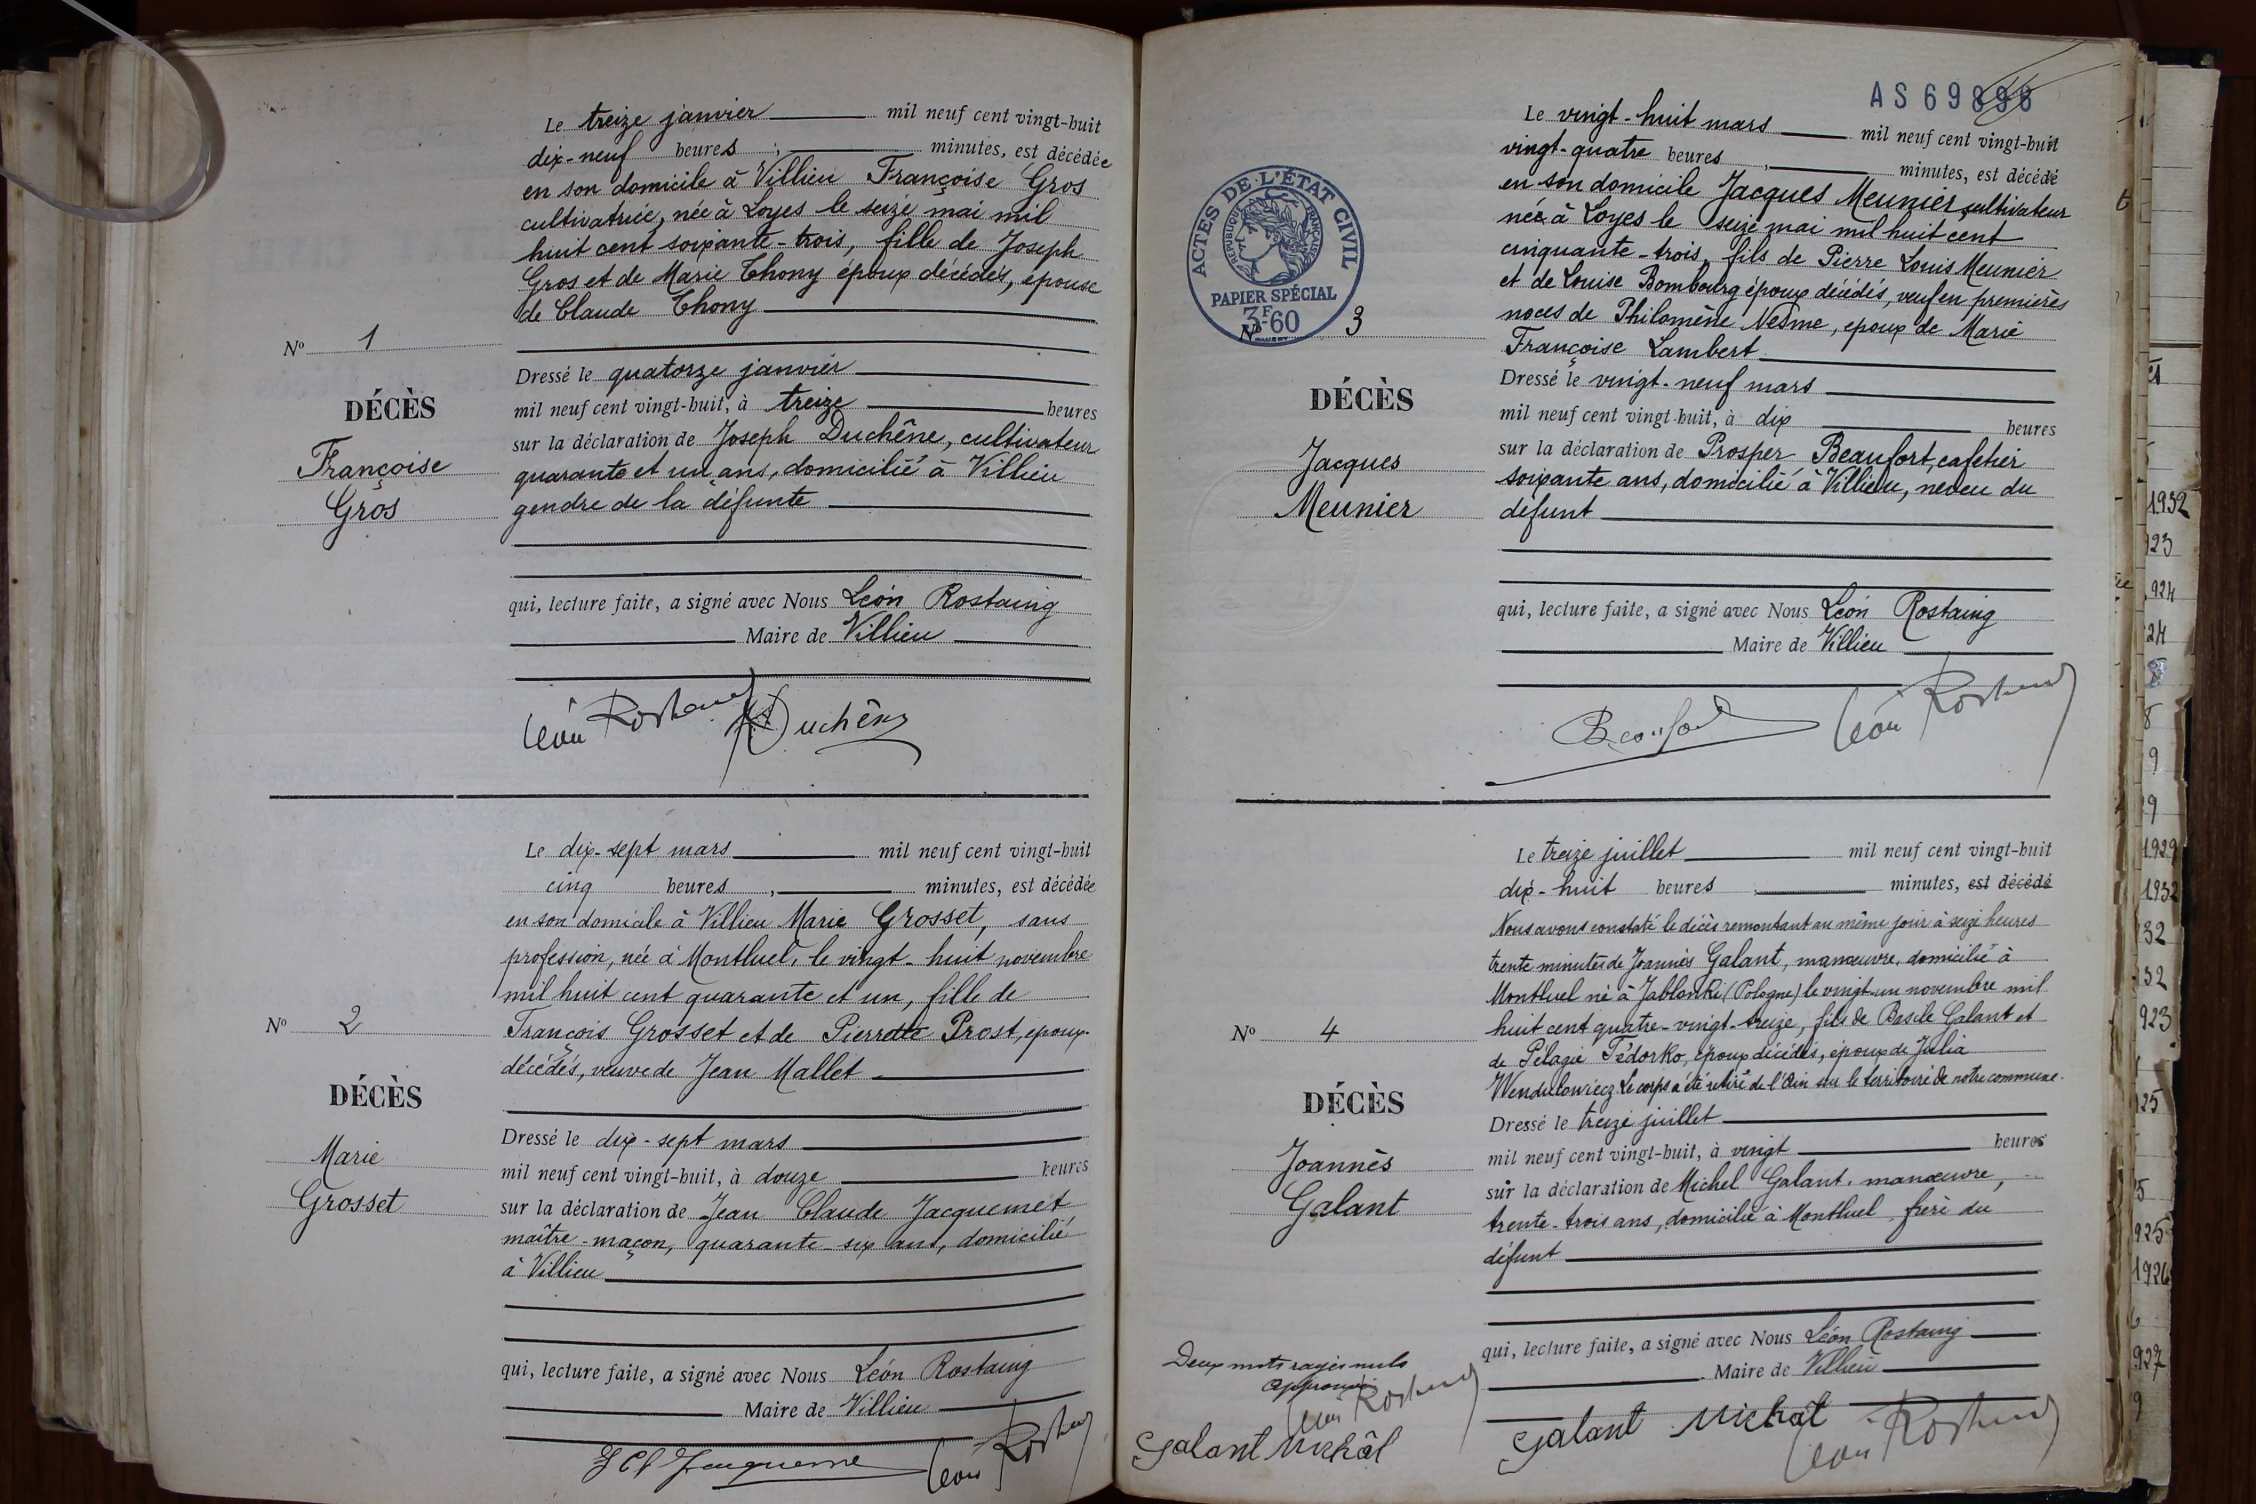 Le treize janvier mil neuf cent vingt-huit
dix-neuf heures, minutes, est décédée
en son domicile à Villieu Françoise Gros
cultivatrice, née à Loyes le seize mai mil
huit cent soixante-trois, fille de Joseph
Gros et de Marie Thony époux décédés, épouse
de Claude Thony
No 1
DÉCÈS
Françoise
Gros
Dressé le quatorze janvier
mil neuf cent vingt-huit, à treize heures
sur la déclaration de Joseph Duchêne, cultivateur
quarante et un ans, domicilié à Villieu
gendre de la défunte
qui, lecture faite, a signé avec Nous Léon Rostaing
Maire de Villieu
Léon Rostaing Duchêne
Le dix-sept mars mil neuf cent vingt-huit
cinq heures, minutes, est décédée
en son domicile à Villieu Marie Grosset, sans
profession, née à Montluel, le vingt-huit novembre
mil huit cent quarante et un, fille de
François Grosset et de Pierrette Prost, époux
décédés, veuve de Jean Mallet
No 2
DÉCÈS
Marie
Grosset
Dressé le dix-sept mars
mil neuf cent vingt-huit, à douze heures
sur la déclaration de Jean Claude Jacquemet
maître-maçon, quarante-six ans, domicilié
à Villieu
qui, lecture faite, a signé avec Nous Léon Rostaing
Maire de Villieu
Léon Rostaing
AS 69898
ACTES DE L'ÉTAT CIVIL
RÉPUBLIQUE FRANÇAISE
PAPIER SPÉCIAL
3F60
Le vingt-huit mars mil neuf cent vingt-huit
vingt-quatre heures, minutes, est décédé
en son domicile Jacques Meunier cultivateur
né à Loyes le seize mai mil huit cent
cinquante-trois, fils de Pierre Louis Meunier
et de Louise Bombourg époux décédés, veuf en premières
noces de Philomène Nesme, époux de Marie
Françoise Lambert
No 3
DÉCÈS
Jacques
Meunier
Dressé le vingt-neuf mars
mil neuf cent vingt-huit, à dix heures
sur la déclaration de Prosper Beaufort, cafetier
soixante ans, domicilié à Villieu, neveu du
défunt
qui, lecture faite, a signé avec Nous Léon Rostaing
Maire de Villieu
Beaufort Léon Rostaing
Le treize juillet mil neuf cent vingt-huit
dix-huit heures minutes, est décédé
Nous avons constaté le décès remontant au même jour à seize heures
trente minutes de Joannès Galant, manœuvre, domicilié à
Montluel né à Jablonki (Pologne) le vingt-un novembre mil
huit cent quatre-vingt-treize, fils de Basile Galant et
de Pélagie Fédorko, époux décédés, époux de Julia
Le corps a été retiré de l'Ain sur le territoire de notre commune.
No 4
DÉCÈS
Joannès
Galant
Dressé le treize juillet
mil neuf cent vingt-huit, à vingt heures
sur la déclaration de Michel Galant, manœuvre,
trente-trois ans, domicilié à Montluel frère du
défunt
qui, lecture faite, a signé avec Nous Léon Rostaing
Maire de Villieu
Deux mots rayés nuls
approuvé
Léon Rostaing
Galant Michâl
Galant Michal Léon Rostaing